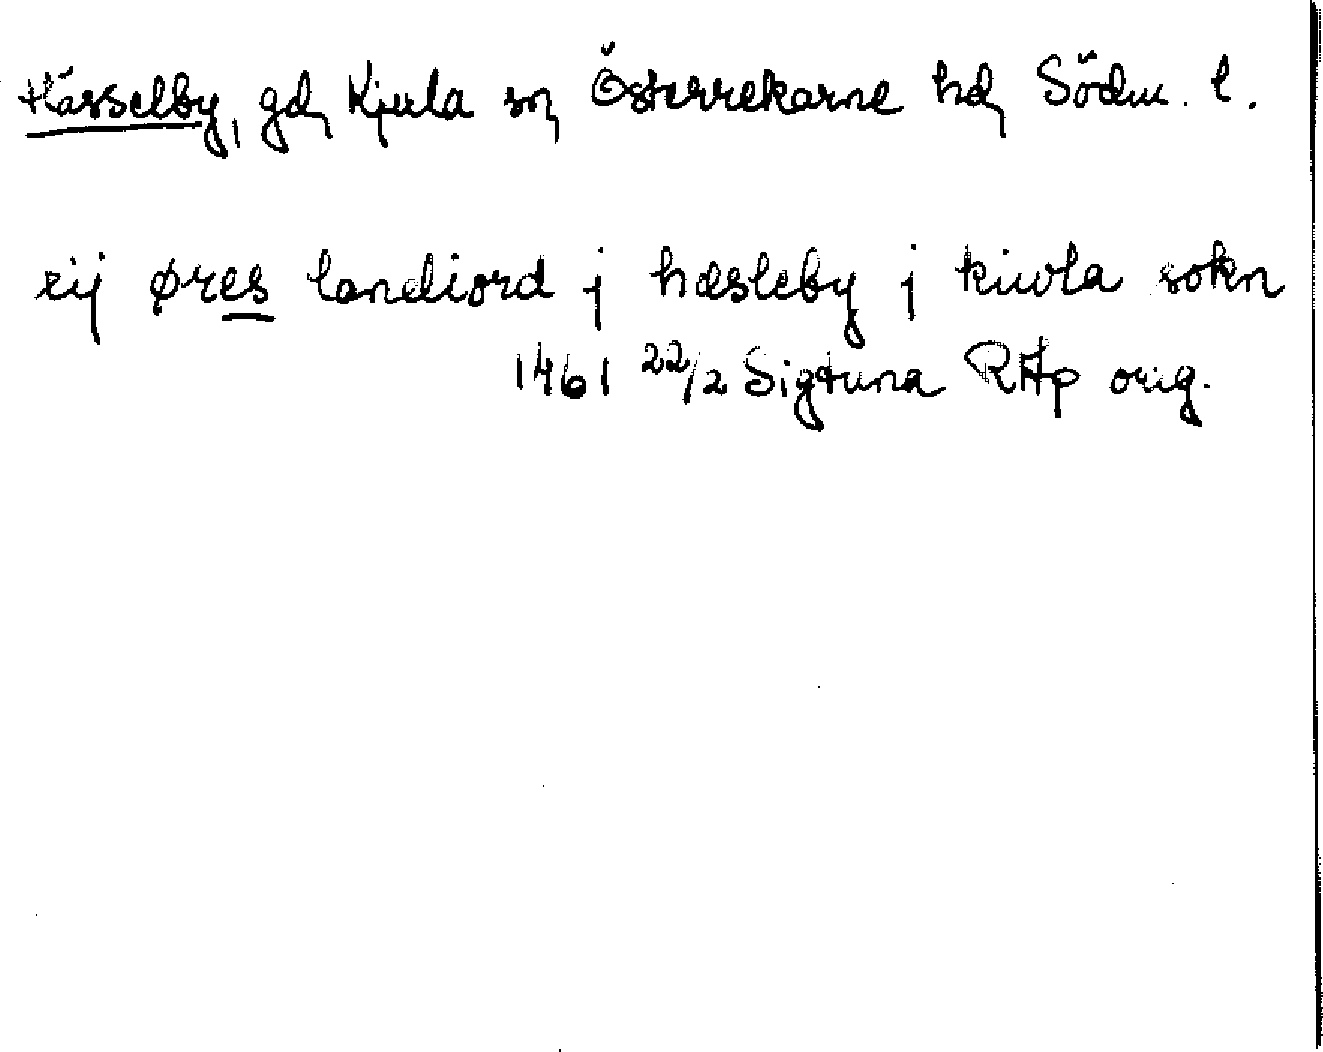 Hässelby, gd, Kjula sn, Österrekarne hd, Södm. l.
xij øres landiord j hæsleby j kiwla sokn
1461 22/2 Sigtuna RAp orig.